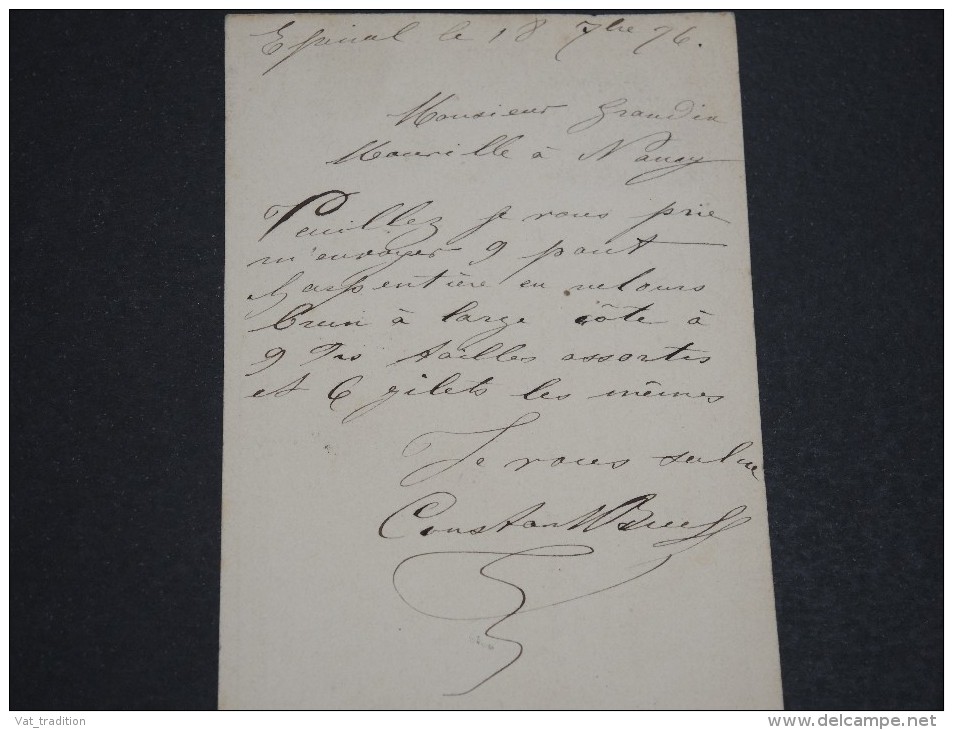 Epinal le 18 7bre 76.
Monsieur Grandin
à Nancy
Veuillez je vous prie
m'envoyer 9 pant
Charpentière en velours
brun à large côte à
9 tailles assorties
et 6 gilets les mêmes
Je vous salue
Constant
Vat_tradition
www.delcampe.net